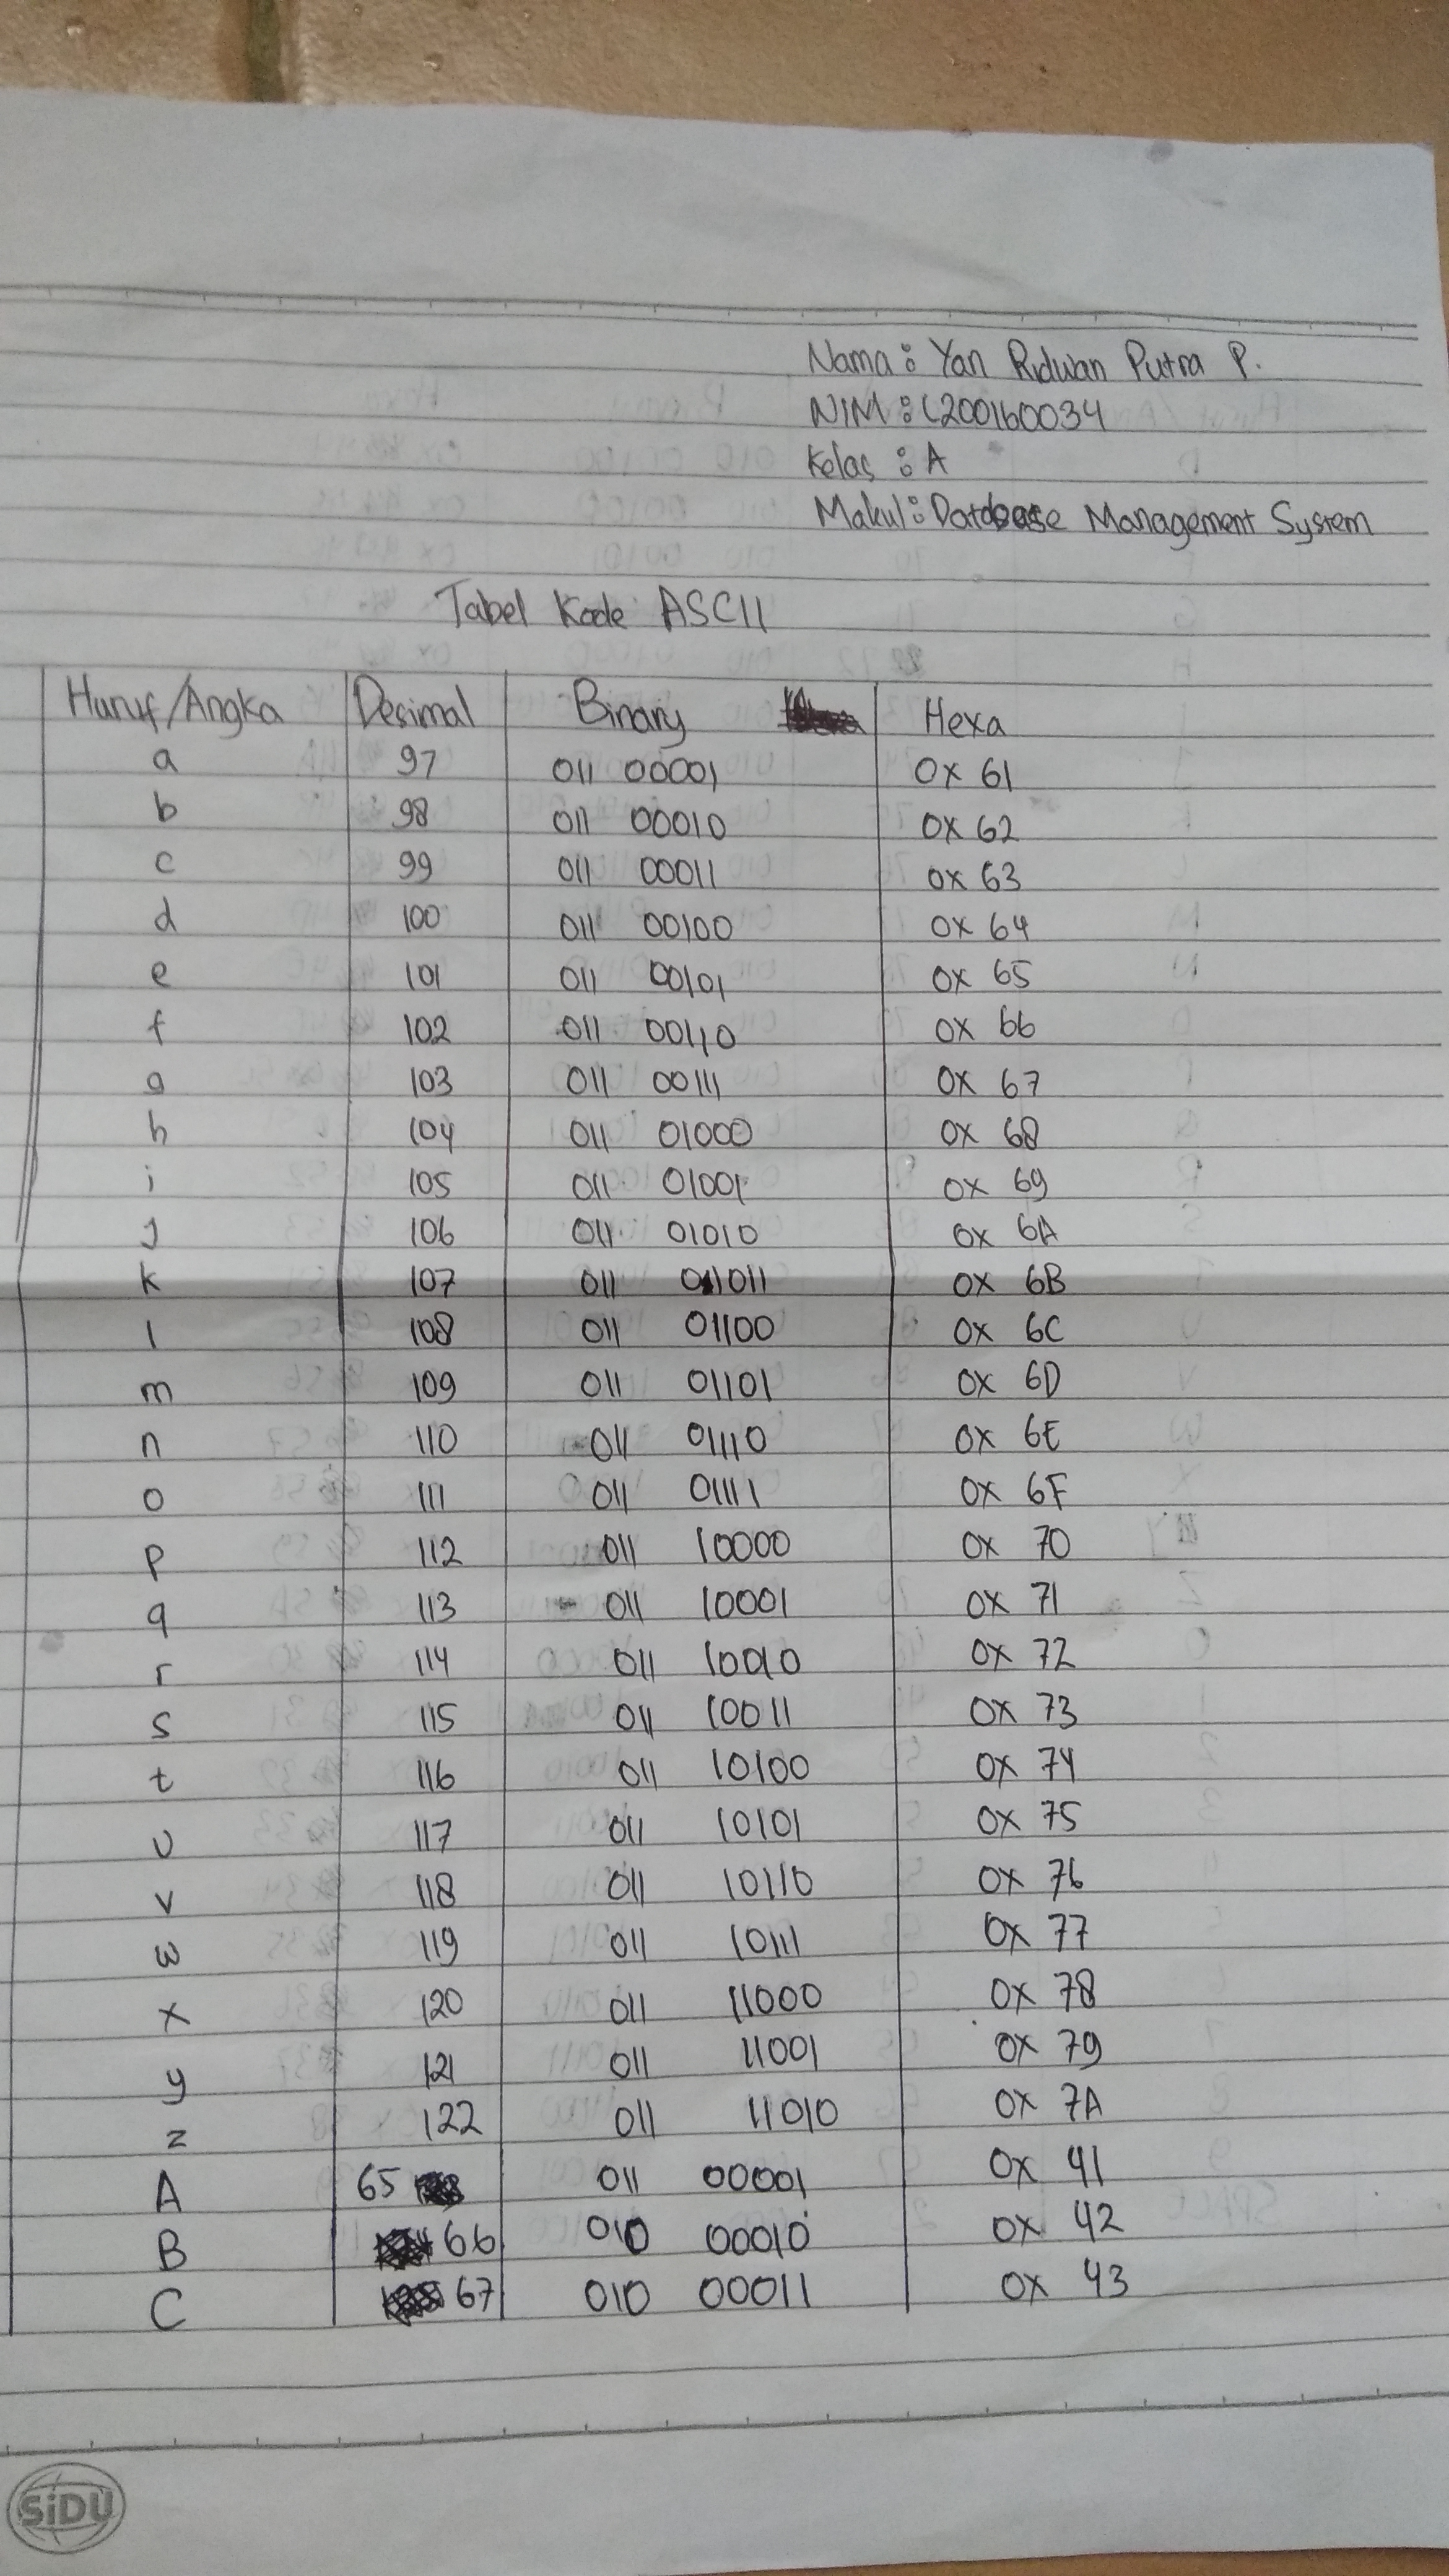 Nama : Yan Ridwan Putra P.
NIM : L200160034
Kelas : A
Makul : Database Management System
Tabel Kode ASCII
Huruf/Angka Desimal Binary Hexa
a 97 011 00001 0x 61
b 98 011 00010 0x 62
c 99 011 00011 0x 63
d 100 011 00100 0x 64
e 101 011 00101 0x 65
f 102 011 00110 0x 66
g 103 011 00111 0x 67
h 104 011 01000 0x 68
i 105 011 01001 0x 69
j 106 011 01010 0x 6A
k 107 011 01011 0x 6B
l 108 011 01100 0x 6C
m 109 011 01101 0x 6D
n 110 011 01110 0x 6E
o 111 011 01111 0x 6F
p 112 011 10000 0x 70
q 113 011 10001 0x 71
r 114 011 10010 0x 72
s 115 011 10011 0x 73
t 116 011 10100 0x 74
u 117 011 10101 0x 75
v 118 011 10110 0x 76
w 119 011 10111 0x 77
x 120 011 11000 0x 78
y 121 011 11001 0x 79
z 122 011 11010 0x 7A
A 65 011 00001 0x 41
B 66 010 00010 0x 42
C 67 010 00011 0x 43
SiDU